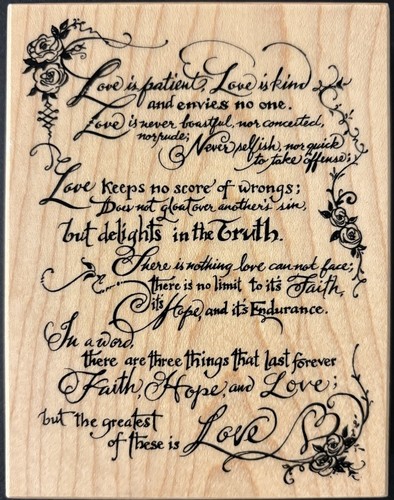 Love is patient, Love is kind
and envies no one.
Love is never boastful, nor conceited,
nor rude; Never selfish, nor quick
to take offense;
Love keeps no score of wrongs;
Does not gloat over another's sin,
but delights in the Truth.
There is nothing love can not face;
there is no limit to it's Faith,
it's Hope, and it's Endurance.
In a word,
there are three things that last forever
Faith, Hope, and Love;
but the greatest
of these is Love